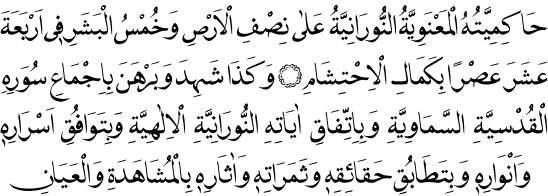 حَاكِمِيَّتُهُ الْمَعْنَوِيَّةُ النُّورَانِيَّةُ عَلٰى نِصْفِ الْاَرْضِ وَخُمْسُ الْبَشَرِ فِى اَرْبَعَةَ
عَشَرَ عَصْرًا بِكَمَالِ الْاِحْتِشَامِ ۞ وَكَذَا شَهِدَ وَبَرْهَنَ بِاِجْمَاعِ سُوَرِهِ
الْقُدْسِيَّةِ السَّمَاوِيَّةِ وَبِاتِّفَاقِ اٰيَاتِهِ النُّورَانِيَّةِ الْاِلٰهِيَّةِ وَبِتَوَافُقِ اَسْرَارِهِ
وَاَنْوَارِهِ وَبِتَطَابُقِ حَقَائِقِهِ وَثَمَرَاتِهِ وَاٰثَارِهِ بِالْمُشَاهَدَةِ وَالْعَيَانِ